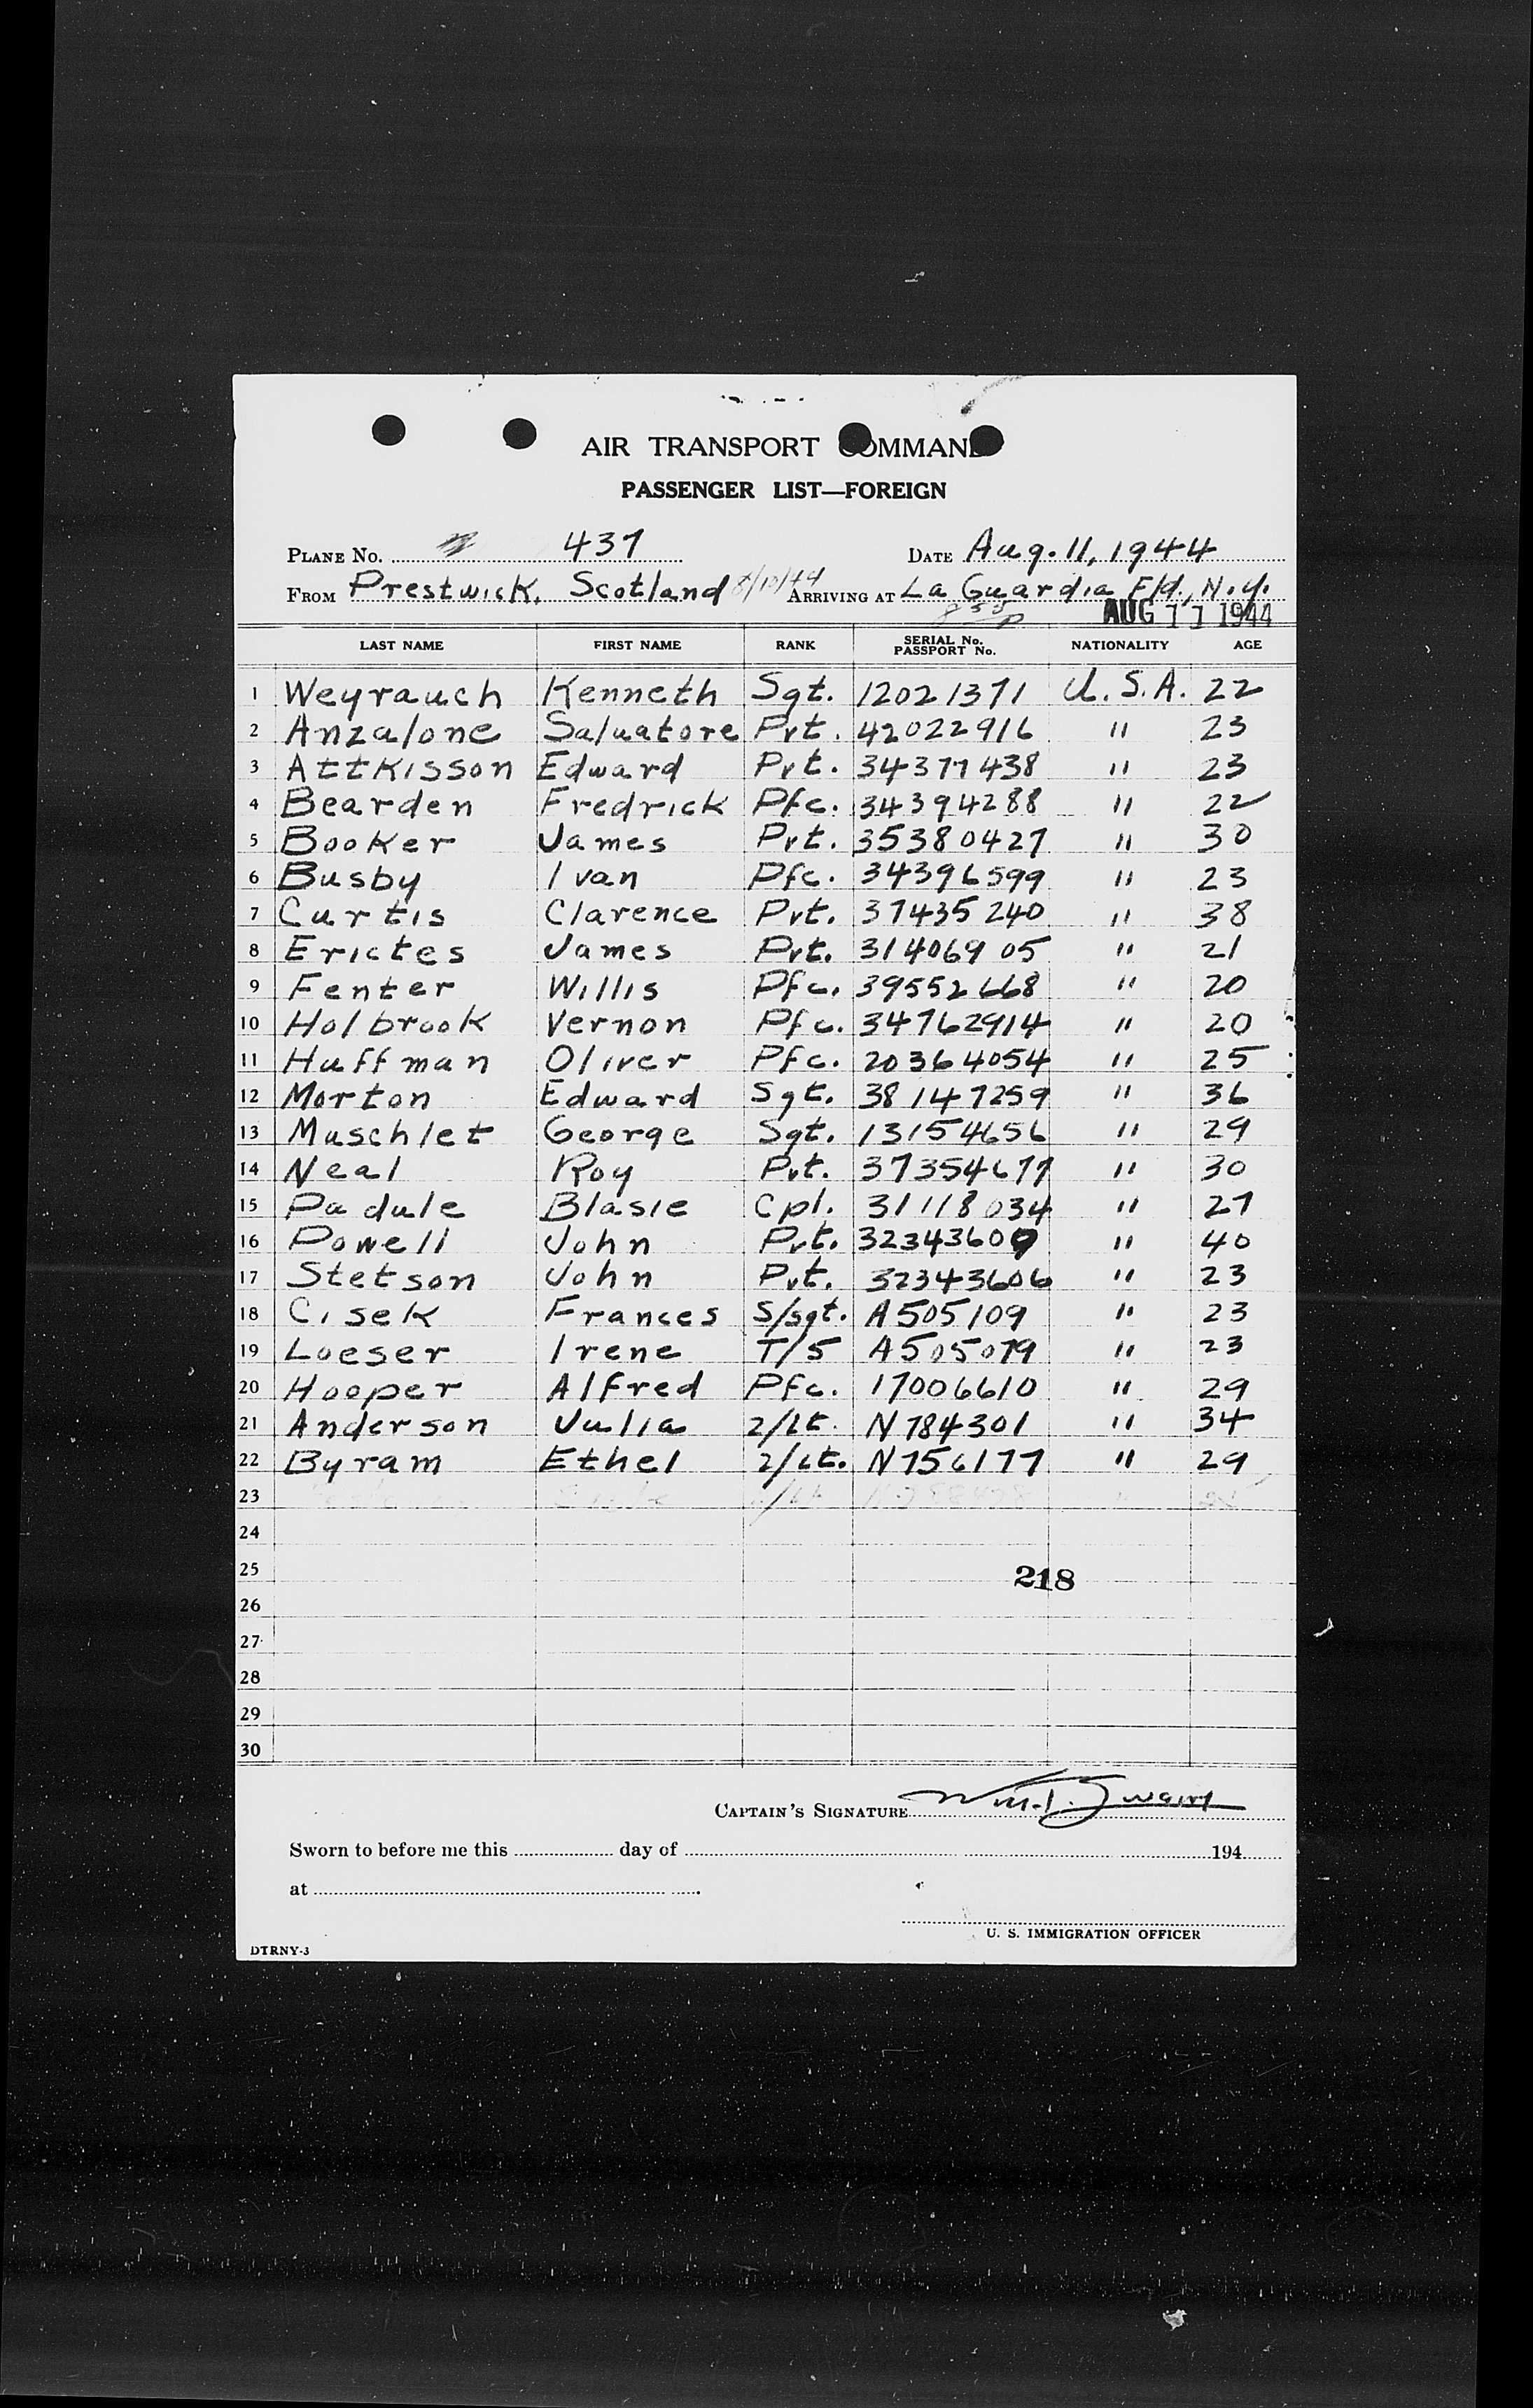 AIR TRANSPORT COMMAND
PASSENGER LIST—FOREIGN
PLANE No. 437 DATE Aug. 11, 1944
FROM Prestwick, Scotland 8/10/44 ARRIVING AT La Guardia Fld., N.Y.
AUG 11 1944
LAST NAME FIRST NAME RANK SERIAL No. PASSPORT No. NATIONALITY AGE
1 Weyrauch Kenneth Sgt. 12021371 U.S.A. 22
2 Anzalone Salvatore Pvt. 42022916 " 23
3 Attkisson Edward Pvt. 34377438 " 23
4 Bearden Fredrick Pfc. 34394288 " 22
5 Booker James Pvt. 35380427 " 30
6 Busby Ivan Pfc. 34396599 " 23
7 Curtis Clarence Pvt. 37435240 " 38
8 Erictes James Pvt. 31406905 " 21
9 Fenter Willis Pfc. 39552668 " 20
10 Holbrook Vernon Pfc. 34762914 " 20
11 Huffman Oliver Pfc. 20364054 " 25
12 Morton Edward Sgt. 38147259 " 36
13 Muschlet George Sgt. 13154656 " 29
14 Neal Roy Pvt. 37354677 " 30
15 Padule Blasie Cpl. 31118034 " 27
16 Powell John Pvt. 32343609 " 40
17 Stetson John Pvt. 32343606 " 23
18 Cisek Frances S/sgt. A505109 " 23
19 Loeser Irene T/5 A505079 " 23
20 Hooper Alfred Pfc. 17006610 " 29
21 Anderson Julia 2/Lt. N784301 " 34
22 Byram Ethel 2/Lt. N756177 " 29
23
24
25 218
26
27
28
29
30
CAPTAIN'S SIGNATURE
Sworn to before me this day of 194
at
U. S. IMMIGRATION OFFICER
DTRNY-3